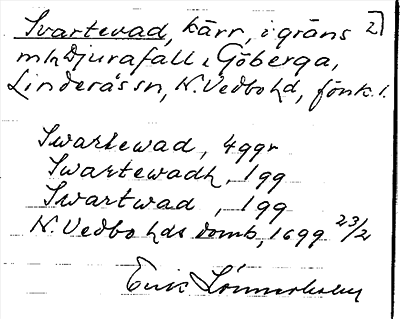 Svartevad, kärr, i gräns 2)
mln Djurafall o Göberga,
Linderås sn, N. Vedbo hd, Jönk. l.
Swartewad, 4 ggr
Swartewadh, 1 gg
Swartwad, 1 gg
N. Vedbo hds domb, 1699 23/2
Erik Lönnerholm